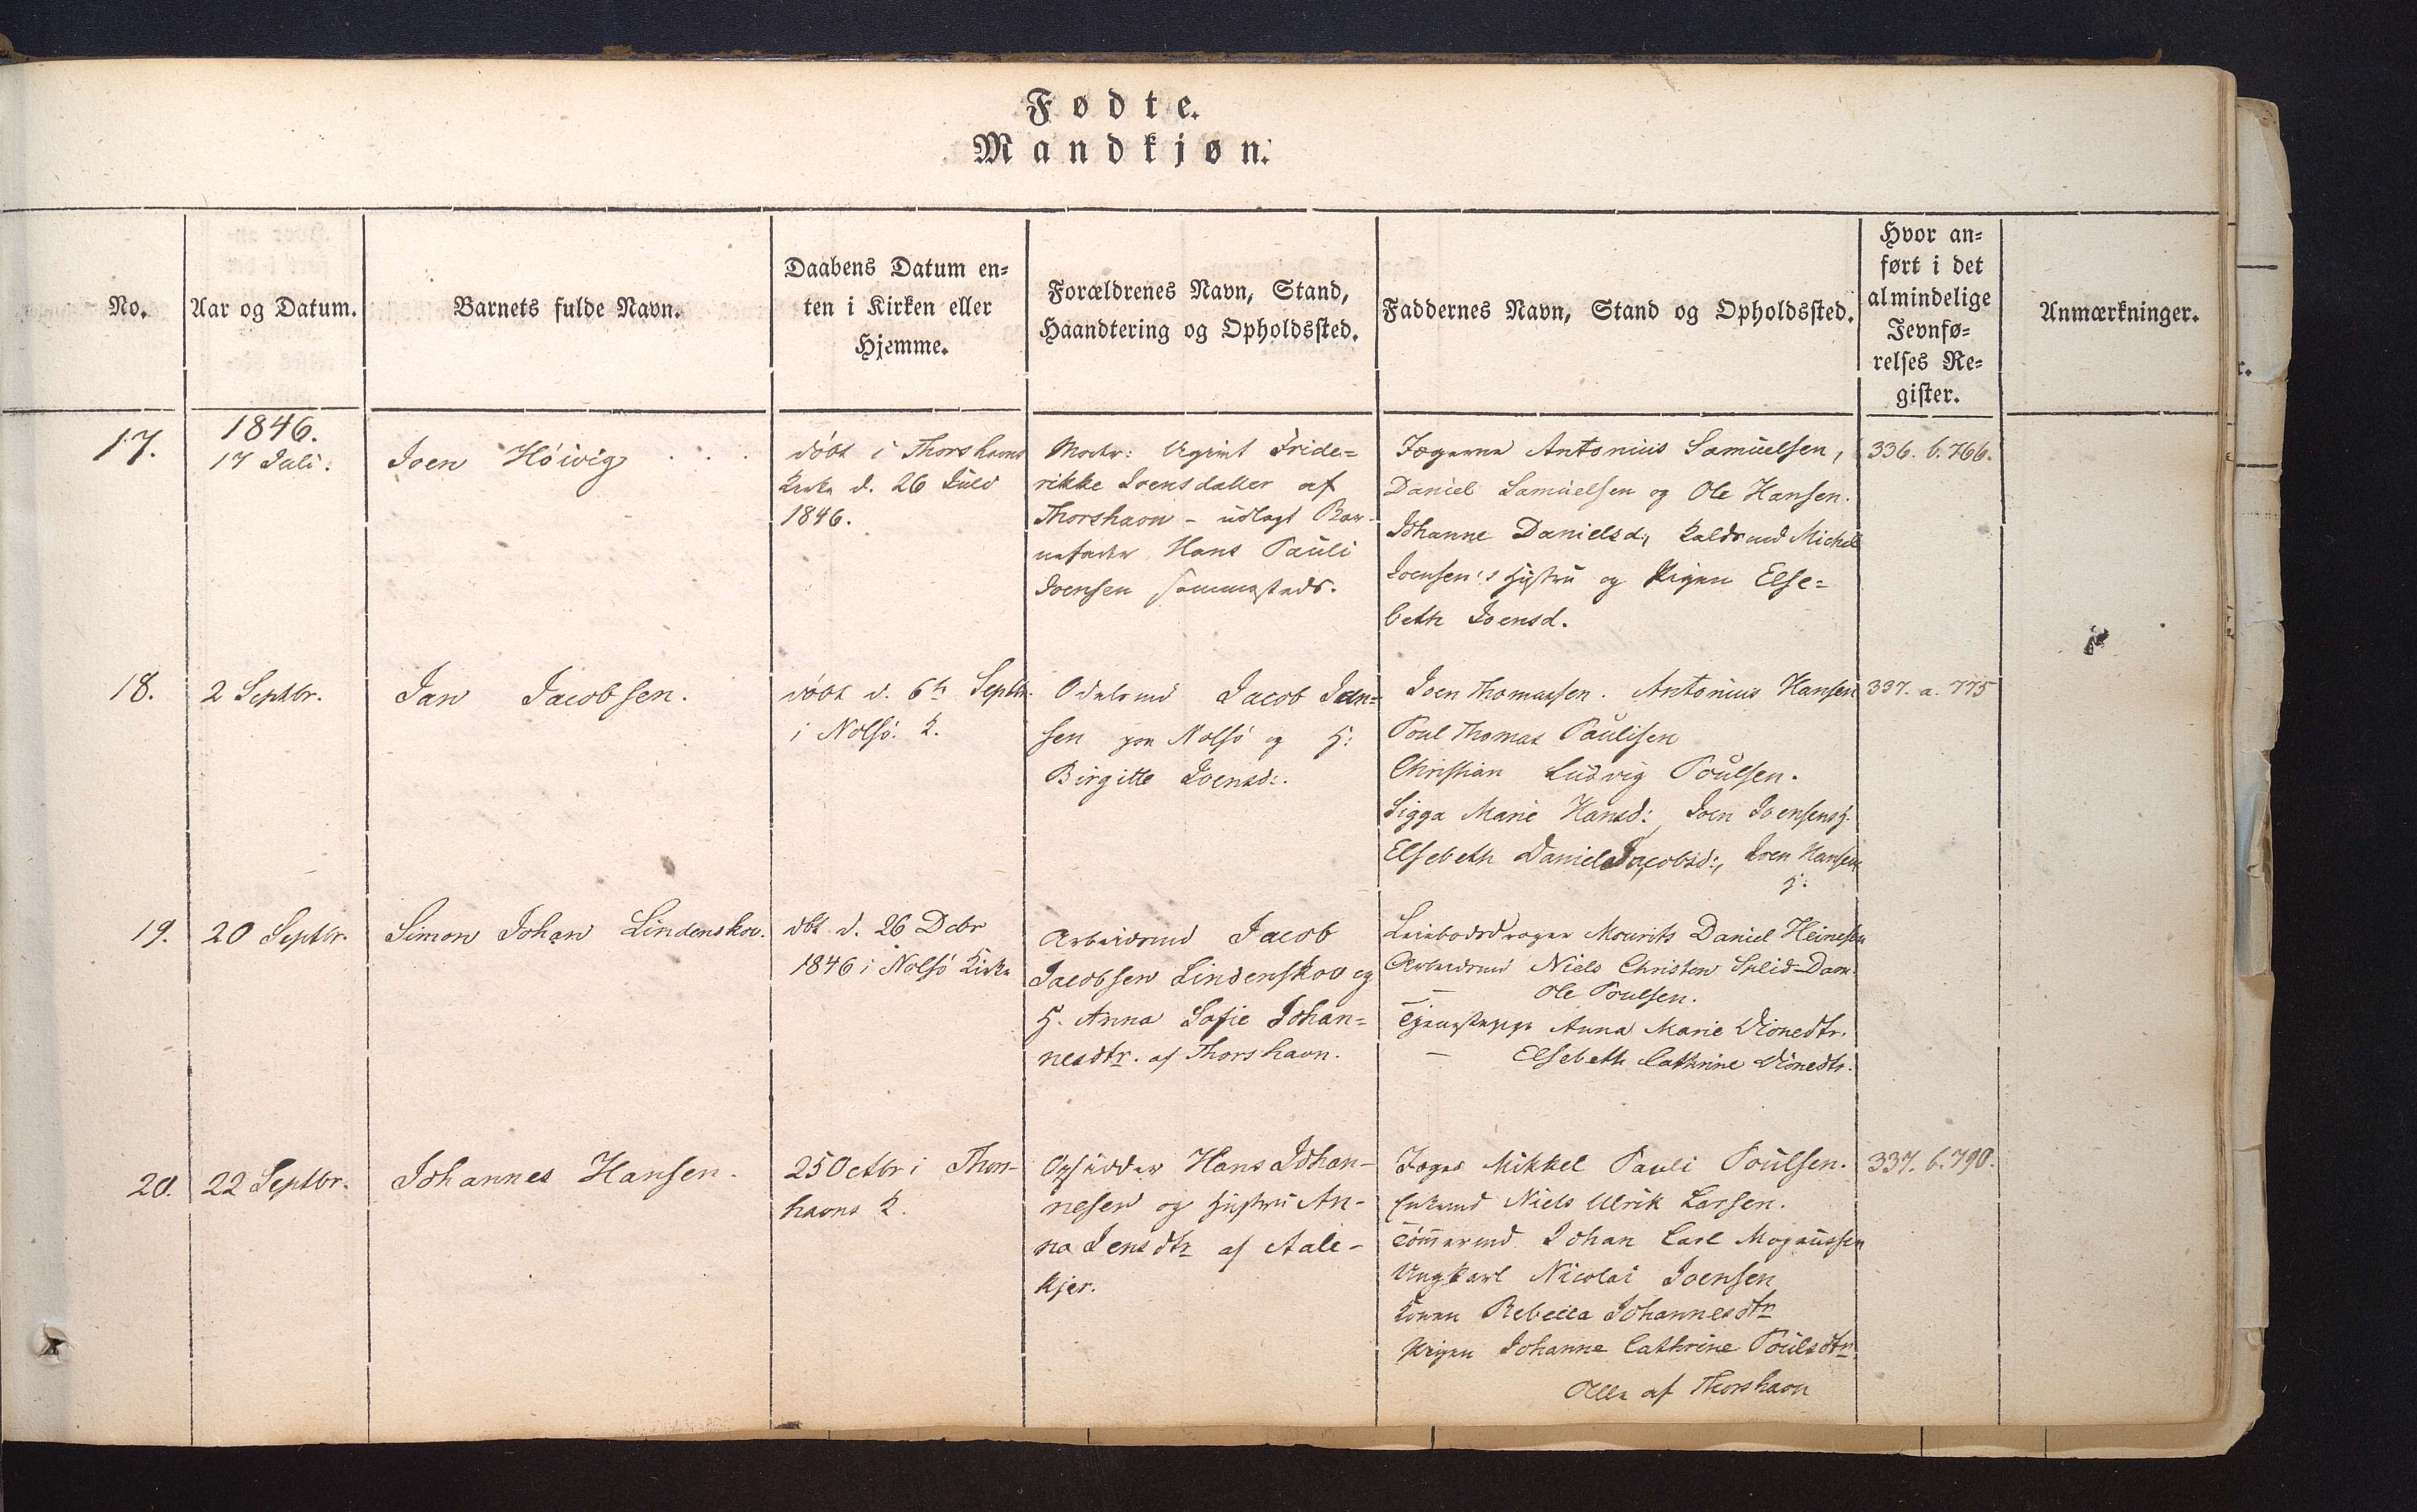 Fødte.
Mandkjøn.
No.
Aar og Datum.
Barnets fulde Navn.
Daabens Datum en=
ten i Kirken eller
Hjemme.
Forældrenes Navn, Stand,
Haandtering og Opholdssted.
Faddernes Navn, Stand og Opholdssted.
Hvor an=
ført i det
almindelige
Jevnfø=
relses Re=
gister.
Anmærkninger.
17.
1846.
17 Juli.
Joen Höivig
döbt i Thorshavns
Kirke d. 26 Juli
1846.
Moder: Ugivt Fride=
rikke Joensdatter af
Thorshavn - udlagt Bar-
nefader Hans Pauli
Joensen sammesteds.
Jægerne Antonius Samuelsen,
Daniel Samuelsen og Ole Hansen.
Johanne Danielsd., Michel
Joensen's Hustru og Pigen Else=
beth Joensd.
336. b. 766.
18.
2 Septbr.
Jan Jacobsen.
döbt d. 6te Septbr.
i Nolsö K.
Odelsmd Jacob Jan=
sen paa Nolsö og H:
Birgitte Joensd:.
Joen Thomassen. Antonius Hansen
Poul Thomas Paulisen
Christian Ludvig Poulsen.
Sigga Marie Hansd:, Joen Joensens H.
Elsebeth Daniel Jacobsd:, Joen Hansens
H.
337. a. 775
19.
20 Septbr.
Simon Johan Lindenskov.
dbt d. 26 Dcbr
1846 i Nolsö Kirke
Arbeidsmd Jacob
Jacobsen Lindenskov og
H. Anna Sofie Johan=
nesdtr. af Thorshavn.
Mourits Daniel Heinesen
Arbeidsmd Niels Christen Splid-Dam.
— Ole Poulsen.
Anna Marie Dionedtr.
— Elsebeth Cathrine Dionedtr.
20.
22 Septbr.
Johannes Hansen.
25 Octbr i Thors-
havns K.
Opsidder Hans Johan-
nesen og Hustru An-
na Jensdtr af Aale-
kjer.
Jæger Mikkel Pauli Poulsen.
Enkemd Niels Ulrik Larsen.
Tömmermd Johan Carl Mogaussen
Ungkarl Nicolai Joensen
Konen Rebecca Johannesdtr
Pigen Johanne Cathrine Poulsdtr
Alle af Thorshavn
337. b. 790.